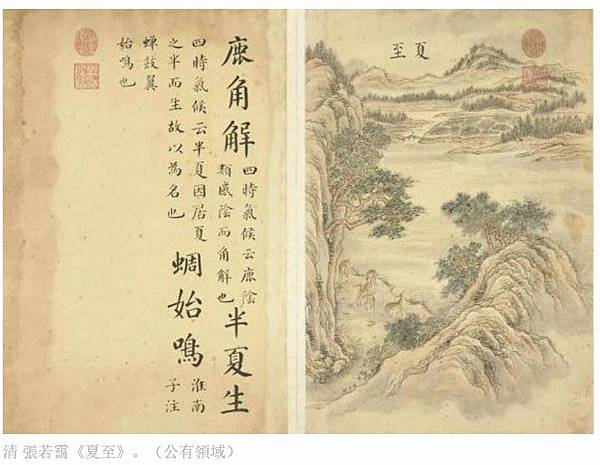 夏至
鹿角解
四時氣候云鹿陰
類感陰而角解也
半夏生
四時氣候云半夏因居夏
之半而生故以為名也
蜩始鳴
淮南
子注
蟬鼓翼
始鳴也
清 張若靄《夏至》。（公有領域）